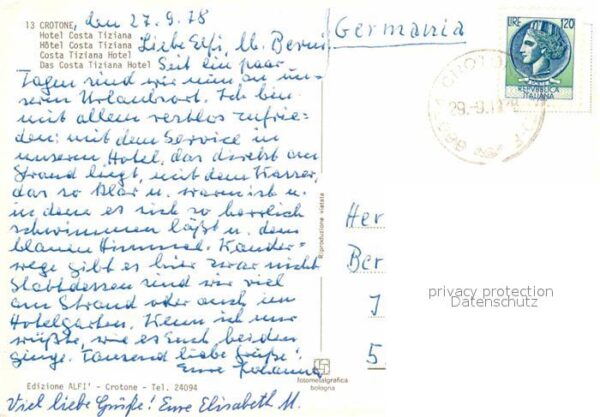 13 CROTONE, den 27.9.78
Hotel Costa Tiziana
Hôtel Costa Tiziana
Costa Tiziana Hotel
Das Costa Tiziana Hotel
Liebe Elfi, u. Bernd
Seit ein paar
Tagen sind wir nun an un-
serem Urlaubsort. Ich bin
mit allem restlos zufrie-
den: mit dem Service in
unserem Hotel, das direkt am
Strand liegt, mit dem Wasser,
das so blau u. warm ist u.
in dem es sich so herrlich
schwimmen läßt u. dem
blauen Himmel. Wander-
wege gibt es hier zwar nicht
Stattdessen sind wir viel
am Strand oder auch im
Hotelgarten. Wenn ich nur
wüßte, wie es Euch beiden
ginge. Tausend liebe Grüße!
Eure Johanna
Edizione ALFI' - Crotone - Tel. 24094
Viel liebe Grüße! Eure Elisabeth M.
Riproduzione vietata
fotometalgrafica
bologna
Germania
LIRE 120
REPUBBLICA
ITALIANA
29.-9.19
Her
Ber
J
5
privacy protection
Datenschutz